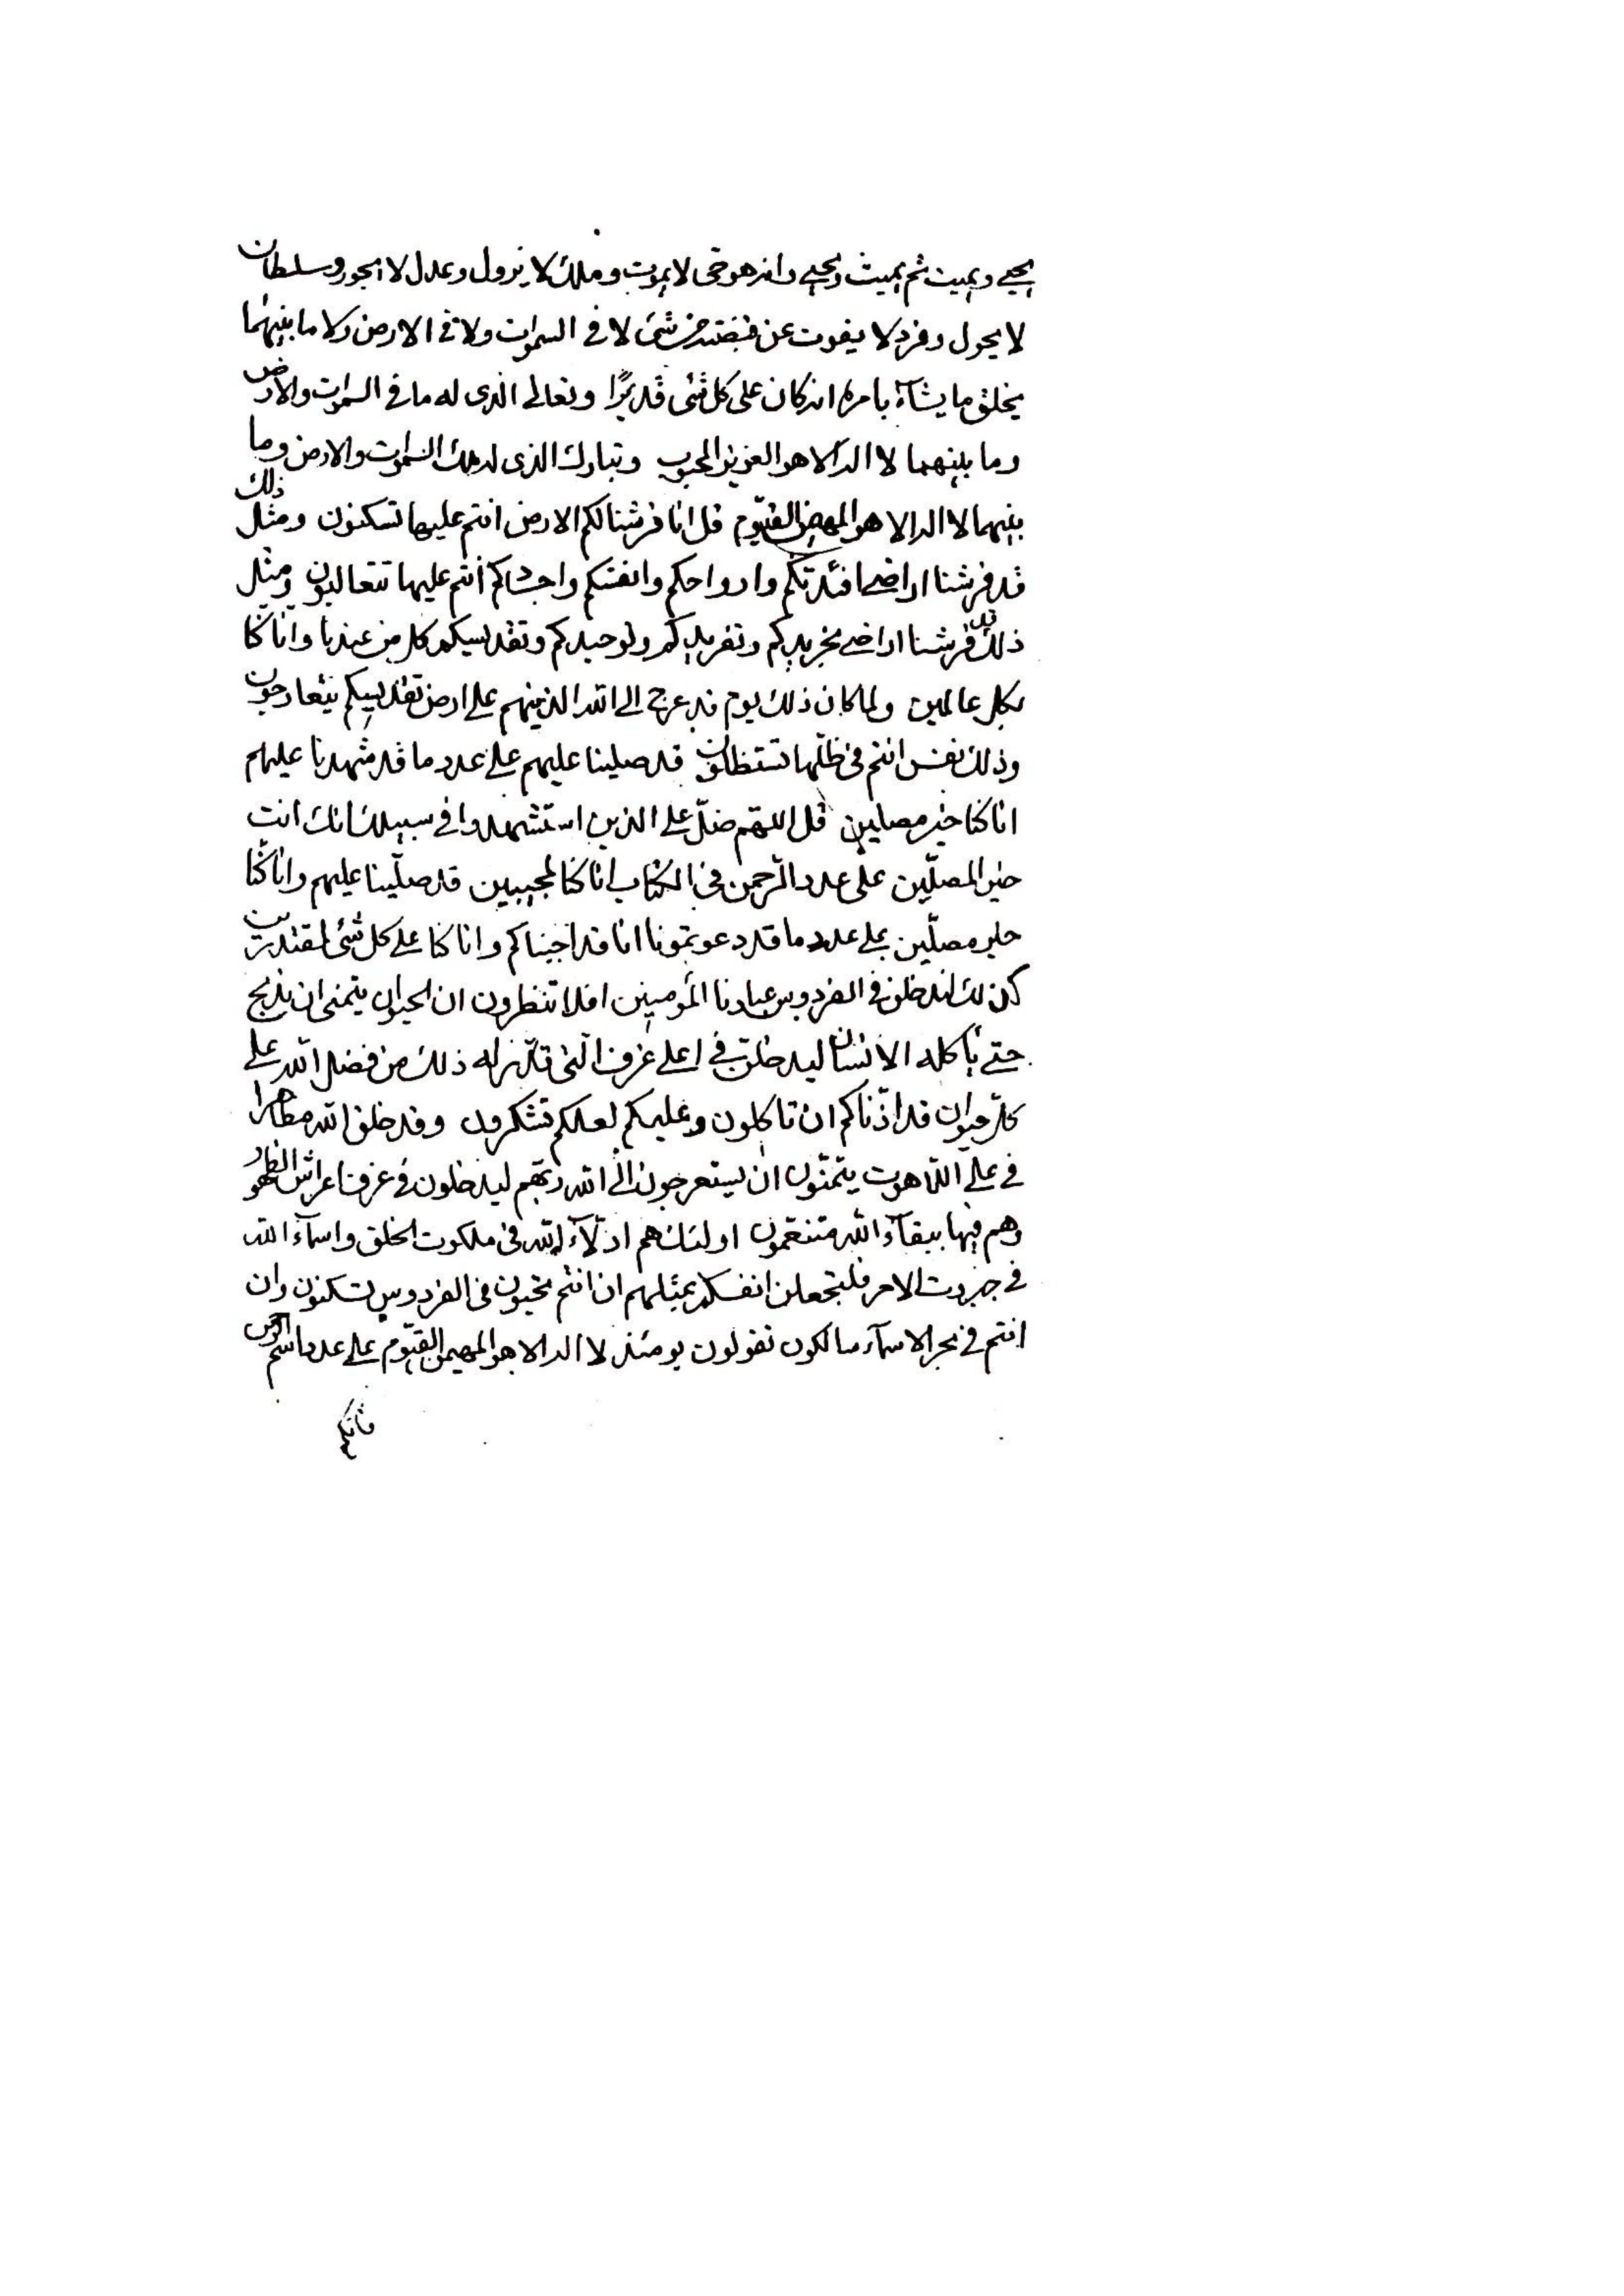 يحيي ويميت ثم يميت ويحيي وانه هو حي لا يموت وملك لا يزول وعدل لا يجور وسلطان
لا يحول وفرد لا يفوت عن قبضته من شئ لا في السموات ولا في الارض ولا ما بينهما
يخلق ما يشآء بامره انه كان على كل شئ قديرًا وتعالى الذى له ما في السموات والارض
وما بينهما لا اله الا هو العزيز المحبوب وتبارك الذى له ملك السموات والارض وما
بينهما لا اله الا هو المهيمن القيّوم قل انا فرشنا لكم الارض انتم عليها تسكنون ومثل ذلك
قد فرشنا اراضى افئدتكم وارواحكم وانفسكم واجسادكم انتم عليها تتعاليون ومثل
ذلك قد فرشنا اراضى تجريدكم وتفريدكم وتوحيدكم وتقديسكم كل من عندنا وانا كنا
بكل عالمين ولما كان ذلك يوم قد عرج الى الله الذينهم على ارض تقديسكم يتعارجون
وذلك نفس انتم في ظلّها تستظلون قد صلينا عليهم على عدد ما قد شهدنا عليهم
انا كنا خير مصلين قل اللهم صلّ على الذين استشهدوا في سبيلك انك انت
خير المصلّين على عدد الرّحمن في الكتاب انا كنا لمجيبين قد صلّينا عليهم وانا كنا
خير مصلّين على عدد ما قد دعوتمونا انا قد اجبناكم وانا كنا على كل شئ لمقتدرين
كذلك لندخلن في الفردوس عبادنا المؤمنين افلا تنظرون ان الحيوان يتمنى ان يذبح
حتى يأكله الانسان ليدخلن في اعلى غرف التى قدّر له ذلك من فضل الله على
كل حيوان قد اذنّاكم ان تاكلون وعليكم لعلكم تشكرون وقد خلق الله مظاهرا
في على اللّاهوت يتمنّون ان يستعرجون الى الله ربّهم ليدخلون في غرف اعراش الظهور
وهم فيها ببقآء الله متنعّمون اولئك هم ادلّآء لله في ملكوت الخلق واسمآء الله
في جبروت الامر فلتجعلن انفسكم بمثلهم ان انتم تحبون في الفردوس تسكنون وان
انتم في بحر الاسمآء سالكون تقولون يومئذ لا اله الا هو المهيمن القيّوم على عدد اسم